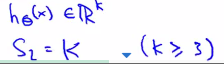 h_θ(x) ∈ ℝ^k
S₂ = K (K ≥ 3)